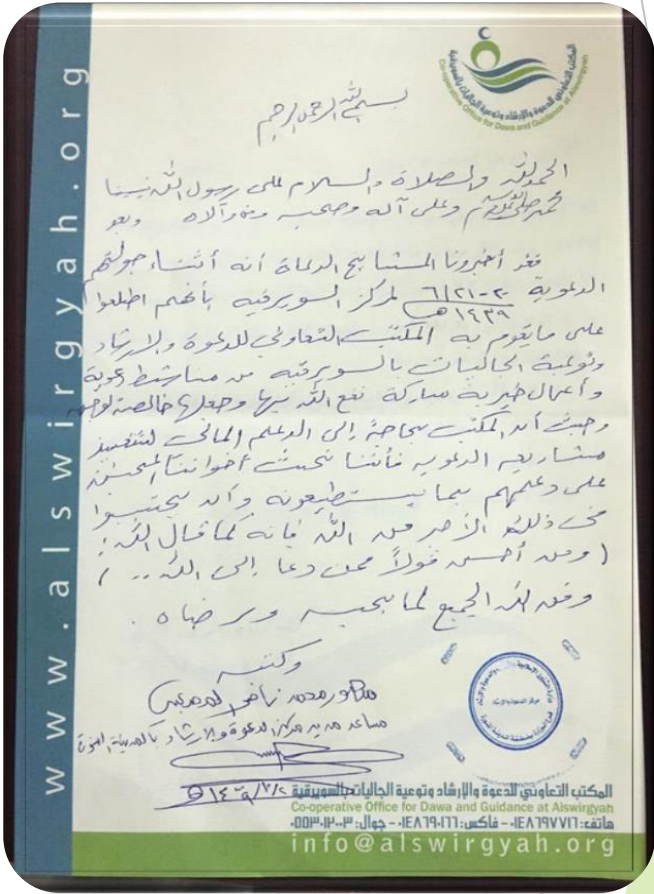 المكتب التعاوني للدعوة والإرشاد وتوعية الجاليات بالسويرقية
Co-operative Office for Dawa and Guidance at Alswirgyah
www.alswirgyah.org
بسم الله الرحمن الرحيم
الحمد لله والصلاة والسلام على رسول الله نبينا
محمد صلى الله عليه وسلم وعلى آله وصحبه ومن والاه وبعد
فقد أخبرونا المشايخ الدعاة أنه أثناء جولتهم
الدعوية ٢٠-٢١/٦/١٤٣٩هـ لمركز السويرقيه بأنهم اطلعوا
على مايقوم به المكتب التعاوني للدعوة والارشاد
وتوعية الجاليات بالسويرقيه من مناشط دعوية
وأعمال خيرية مباركة نفع الله بها وجعلها خالصة لوجهه
وحيث أن المكتب بحاجة إلى الدعم المالي لتنفيذ
مشاريعه الدعويه فأننا نحث أخواننا المحسنين
على دعمهم بما يستطيعونه وأن يحتسبوا
في ذلك الأجر من الله فإنه كما قال الله :
( ومن أحسن قولاً ممن دعا إلى الله .. )
وفق الله الجميع لما يحبه ويرضاه .
وكتبه
محمد
مساعد مدير مركز الدعوة والارشاد بالمدينة
المكتب التعاوني للدعوة والإرشاد وتوعية الجاليات بالسويرقية
Co-operative Office for Dawa and Guidance at Alswirgyah
هاتف: ٠١٤٨٦٩٧٧١٦ - فاكس: ٠١٤٨٦٩٠١٦٦ - جوال: ٠٥٥٣٠١٢٠٠٣
info@alswirgyah.org